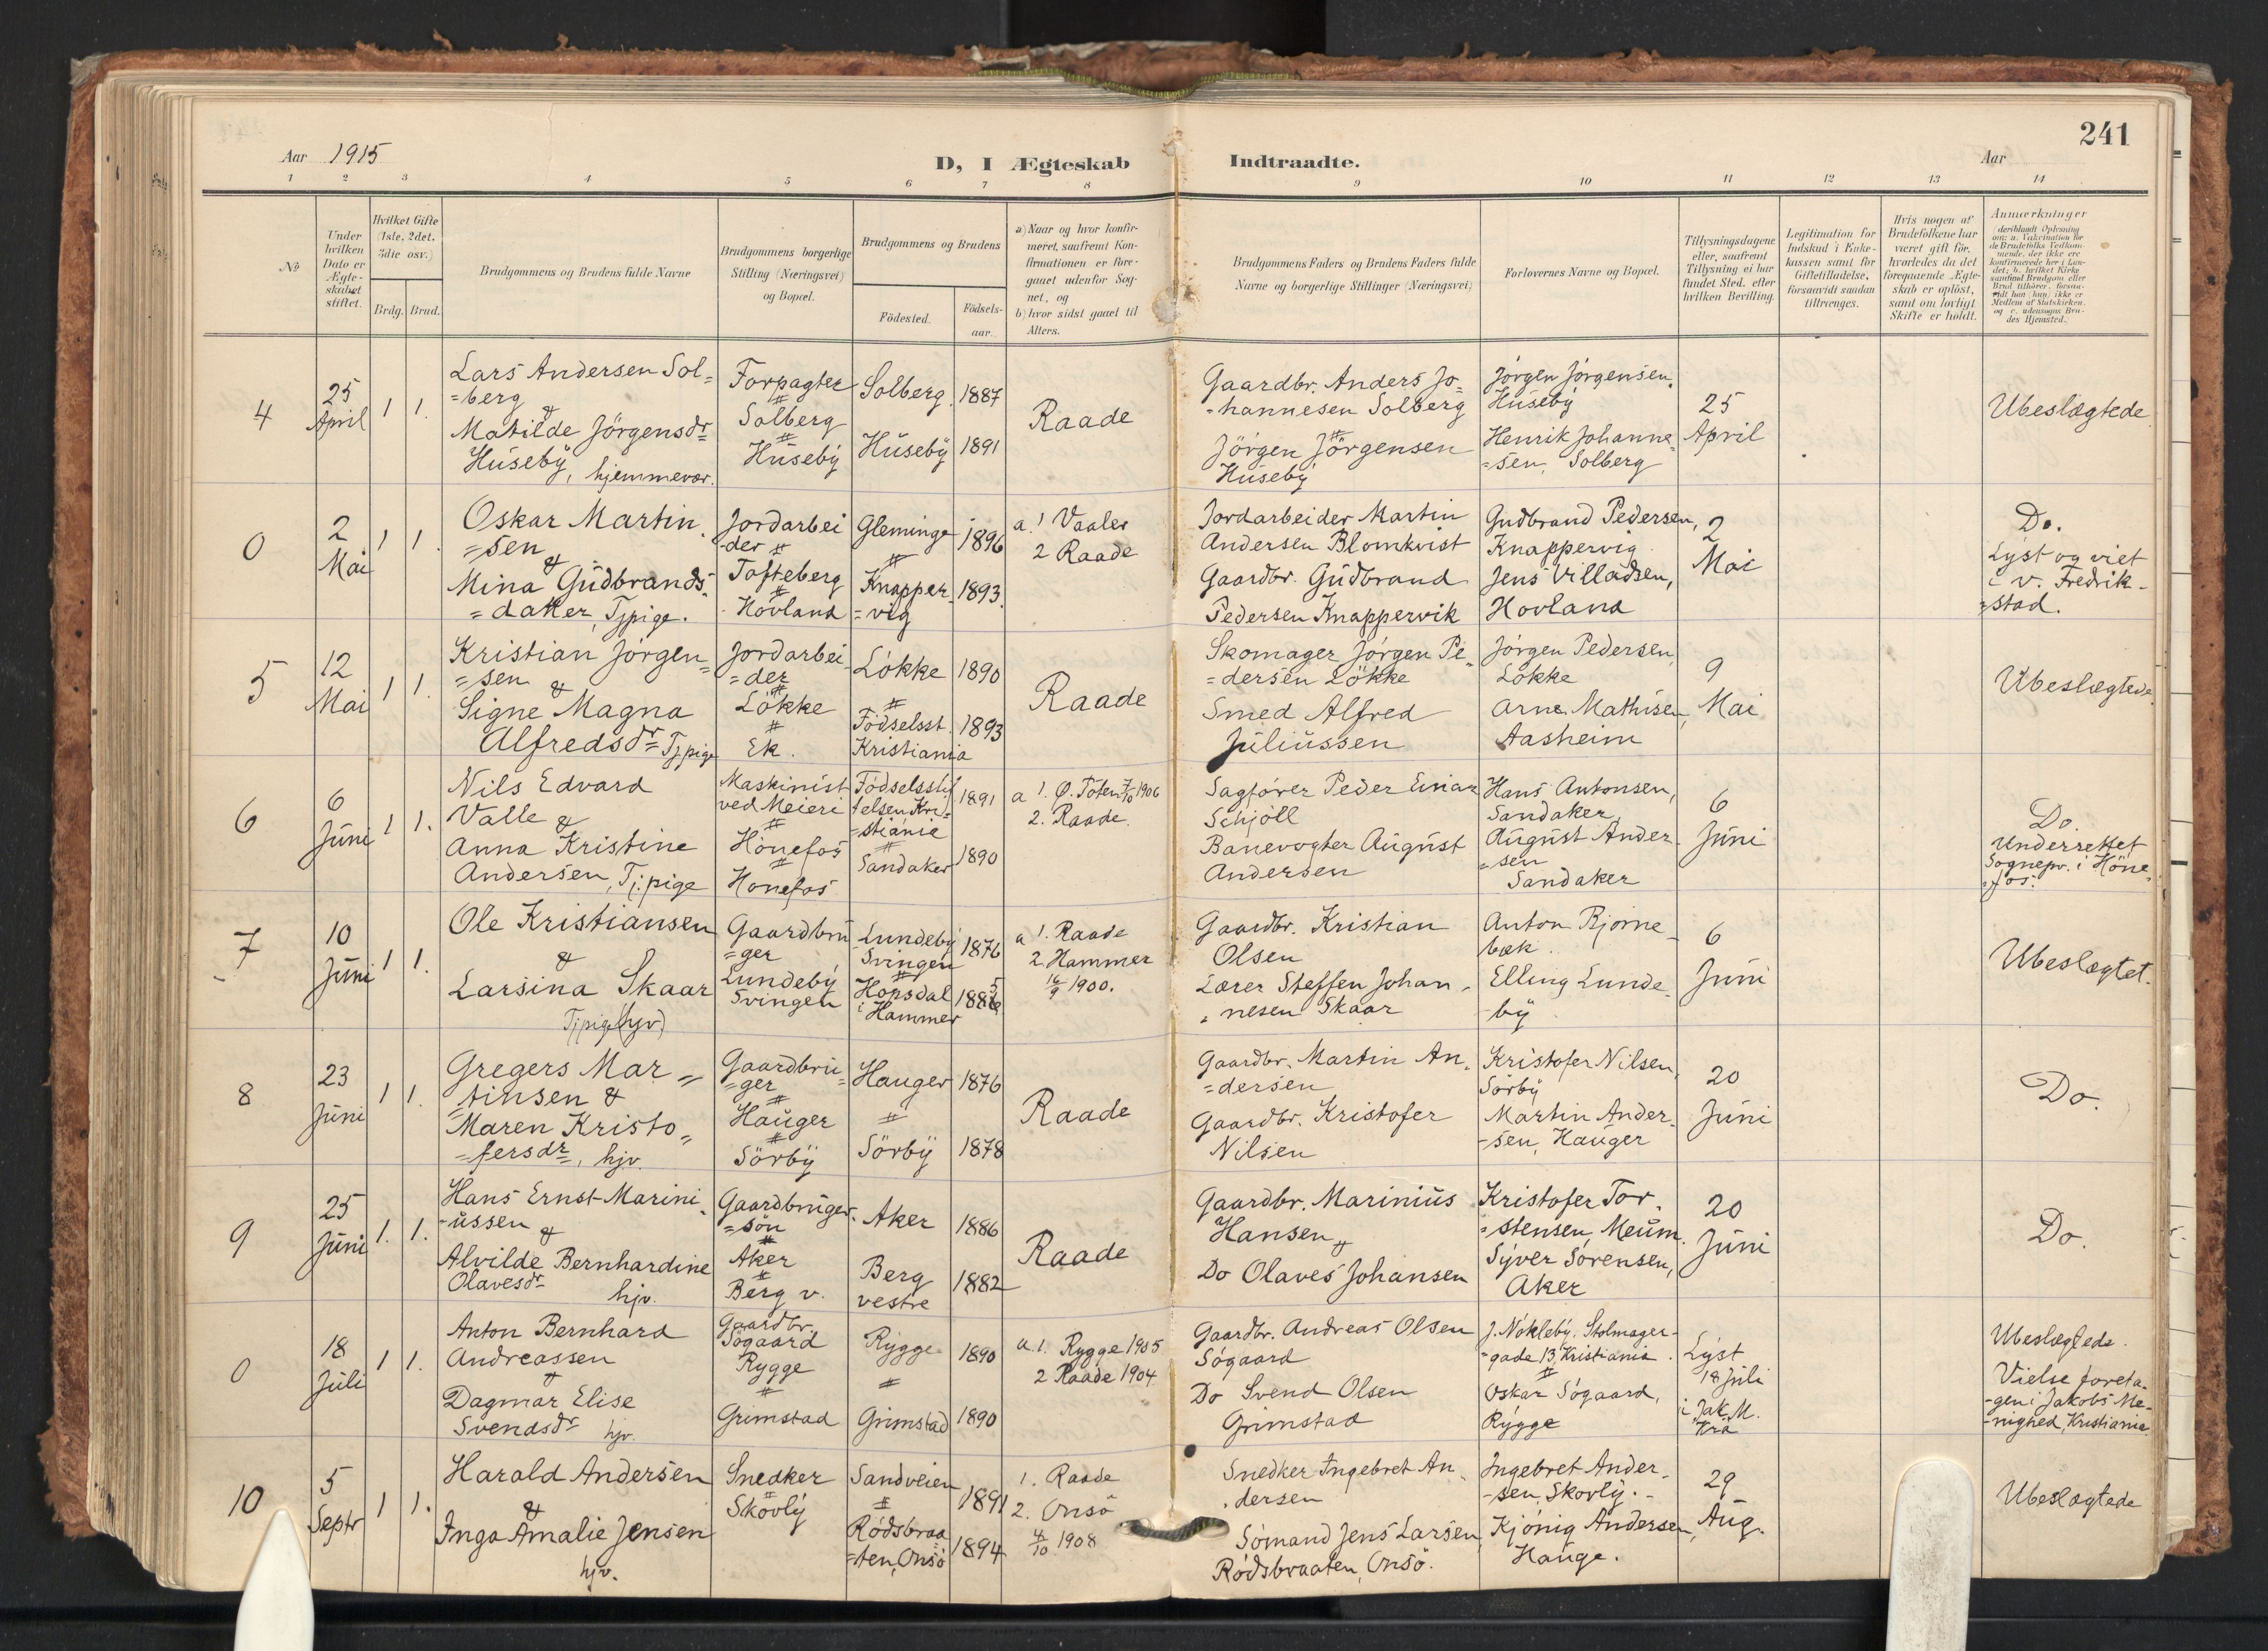 241
Aar 1915
D, I Ægteskab Indtraadte.
Aar
1 2 3 4 5 6 7 8 9 10 11 12 13 14
No
Under hvilken Dato er Ægteskabet stiftet.
Hvilket Gifte (1ste, 2det, 3die osv.)
Brdg. Brud.
Brudgommens og Brudens fulde Navne
Brudgommens borgerlige Stilling (Næringsvei) og Bopæl.
Brudgommens og Brudens
Födested.
Födsels-aar.
a) Naar og hvor konfirmeret, saafremt Konfirmationen er foregaaet udenfor Sognet, og
b) hvor sidst gaaet til Alters.
Brudgommens Faders og Brudens Faders fulde Navne og borgerlige Stillinger (Næringsvei)
Forlovernes Navne og Bopæl.
Tillysningsdagene eller, saafremt Tillysning ei har fundet Sted, efter hvilken Bevilling.
Legitimation for Indskud i Enkekassen samt for Giftetilladelse, forsaavidt saadan tiltrænges.
Hvis nogen af Brudefolkene har været gift før, hvorledes da det foregaaende Ægteskab er oplöst, samt om lovligt Skifte er holdt.
Anmerkninger
4
25
April
1 1.
Lars Andersen Sol=
=berg
&
Matilde Jörgensdr
Huseby, hjemmevær.
Forpagter
Solberg
Huseby
Solberg. 1887
Huseby 1891
Raade
Gaardbr. Anders Jo=
-hannesen Solberg
Jörgen Jörgensen
Huseby
Jörgen Jörgensen,
Huseby
Henrik Johanne
=sen, Solberg
25
April
Ubeslægtede
0
2
Mai
1 1.
Oskar Martin
=sen
&
Mina Gudbrands
=datter, Tjpige.
Jordarbei
-der
Tofteberg
Hovland
Gleminge 1896
Knapper 1893.
=vig
a. 1 Vaaler
2 Raade
Jordarbeider Martin
Andersen Blomkvist
Gaardbr. Gudbrand
Pedersen Knappervik
Gudbrand Pedersen,
Knappervig
Jens Villadsen,
Hovland
2
Mai
Do.
Lyst og viet
i v. Fredrik-
=stad.
5
12
Mai
1 1.
Kristian Jörgen=
=sen
&
Signe Magna
Alfredsdr Tjpige
Jordarbei
=der
Lökke
Ek.
Lökke 1890
Födselsst. 1893
Kristiania
Raade
Skomager Jörgen Pe
=dersen Lökke
Smed Alfred
Juliussen
Jörgen Pedersen,
Lökke
Arne Mathisen,
Aasheim
9
Mai
Ubeslægtede
6
6
Juni
1 1.
Nils Edvard
Valle &
Anna Kristine
Andersen, Tj.pige
Maskinist
ved Meieri
Hönefos
Hönefos
Födselssti
telsen Kri=
=stiania
1891
Sandaker 1890
a 1. Ø. Toten 7/10 1906
2. Raade.
Sagförer Peder Einar
Schjöll
Banevogter August
Andersen
Hans Antonsen,
Sandaker,
August Ander
=sen
Sandaker
6
Juni
Do.
Underrettet
Sognepr. i Höne
fos.
7
10
Juni
1 1.
Ole Kristiansen
&
Larsina Skaar
Tjpige (hjv)
Gaardbru
=ger
Lundeby
Svingen
Lundeby
Svingen
1876
Hopsdal
i Hammer
a 1. Raade
2 Hammer
16/9 1900.
Gaardbr. Kristian
Olsen
Lærer Steffen Johan
nesen Skaar
Anton Bjorne
bæk.
Elling Lunde
-by
6
Juni
Ubeslægtet.
8
23
Juni
1 1.
Gregers Mar=
=tinsen &
Maren Kristo=
=fersdr, hjv.
Gaardbru=
=ger
Hauger
Sörby
Hauger 1876
Sörby 1878
Raade
Gaardbr. Martin An
=dersen
Gaardbr. Kristofer
Nilsen
Kristofer Nilsen,
Sörby
Martin Ander
-sen, Hauger
20
Juni
Do.
9
25
Juni
1. 1.
Hans Ernst Marini
-ussen
&
Alvilde Bernhardine
Olavesdr hjv.
Gaardbruger
=sön
Aker
Berg v.
Aker 1886
Berg 1882
vestre
Raade
Gaardbr. Marinius
Hansen
Do Olaves Johansen
Kristofer Tor
=stensen, Meum.
Syver Sörensen,
Aker
20
Juni
Do.
0
18
Juli
1 1.
Anton Bernhard
Andreassen
&
Dagmar Elise
Svendsdr hjv.
Gaardbr.
Sögaard
Rygge
Grimstad
Rygge 1890
Grimstad 1890
a. 1. Rygge 1905
2 Raade 1904
Gaardbr. Andreas Olsen
Sögaard
Do Svend Olsen
Grimstad
J. Nökleby. Stolmager-
gade 13, Kristiania.
Oskar Sögaard,
Rygge
Lyst
18 Juli
i Jak. M.
Kra
Ubeslægtede.
Vielse foreta-
-gen i Jakobs Me-
-nighed, Kristiania
10
5
Septr
1 1.
Harald Andersen
&
Inga Amalie Jensen
hjv.
Snedker
Skovly
Sandveien 1891
Rödsbraa 1894
=ten, Onsö
1. Raade
2. Onsö
4/10 1908
Snedker Ingebret An
dersen
Sömand Jens Larsen
Rödsbraaten, Onsö.
Ingebret Ander-
-sen, Skovly.
Kjönig Andersen,
Hauge.
29
Aug.
Ubeslægtede